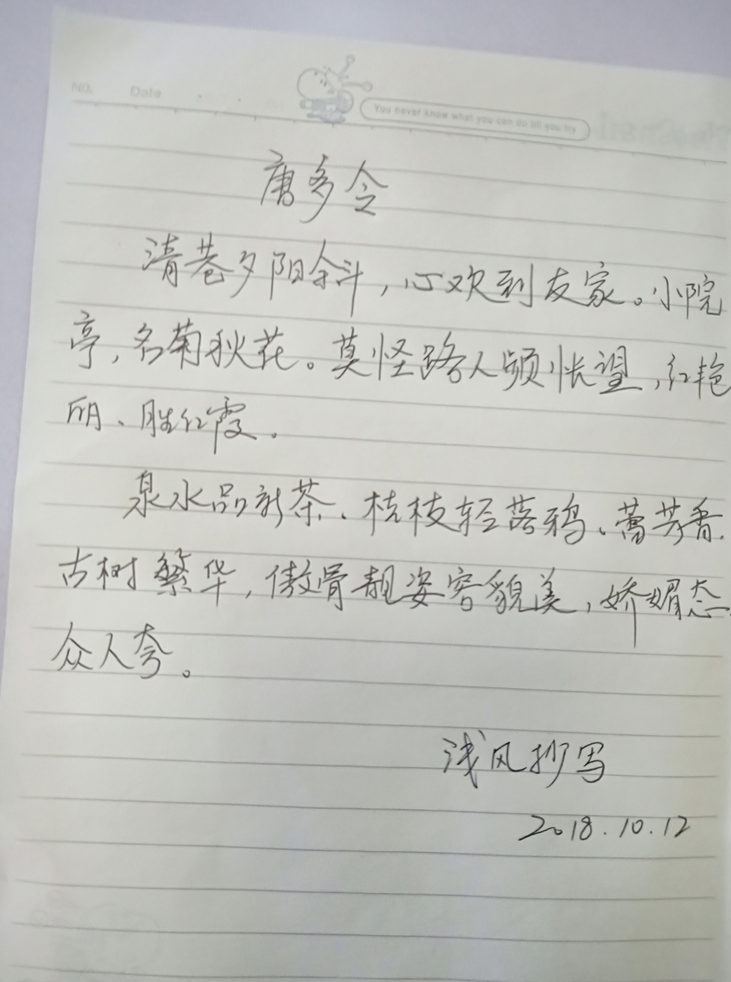 No.
Date
You never know what you can do till you try
唐多令
清巷夕阳余斗，心欢到友家。小院
亭，名菊秋花。莫怪路人频怅望，红艳
阴、胜红霞.
泉水品新茶、桔枝轻落鸦、蒿芳香.
古树繁华，傲骨靓姿容貌美，娇媚态.
众人夸。
浅风抄写
2018.10.12